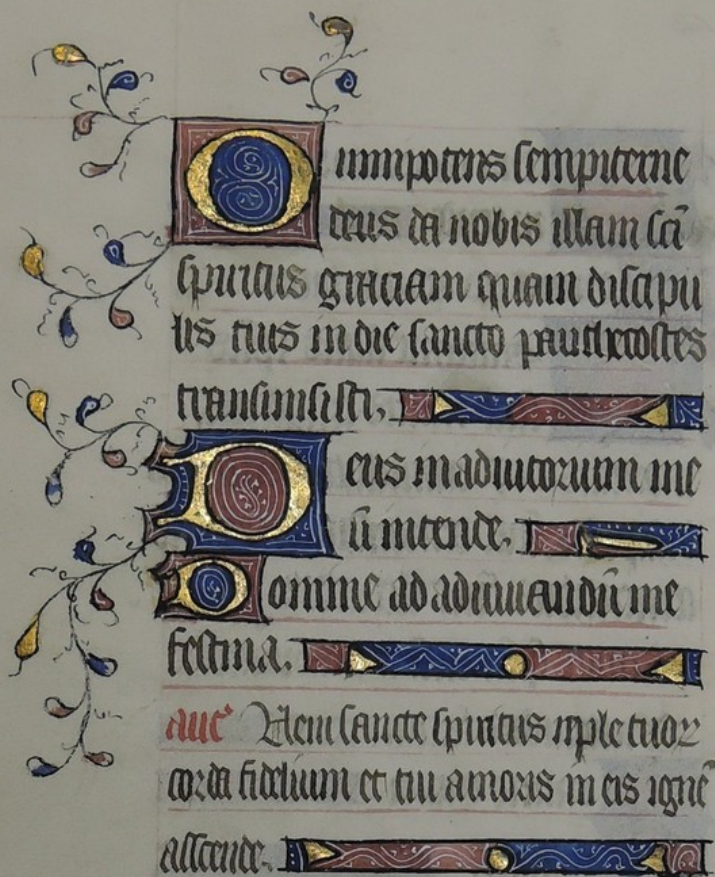 Omnipotens sempiterne
deus da nobis illam sctī
spiritus graciam quam discipu
lis tuis in die sancto panthecostes
transimsisti.
Deus in adiutorium me
ū intende.
Domine ad adiuuandū me
festina.
Veni sancte spiritus reple tuoꝝ
corda fidelium et tui amoris in eis ignē
asscende.